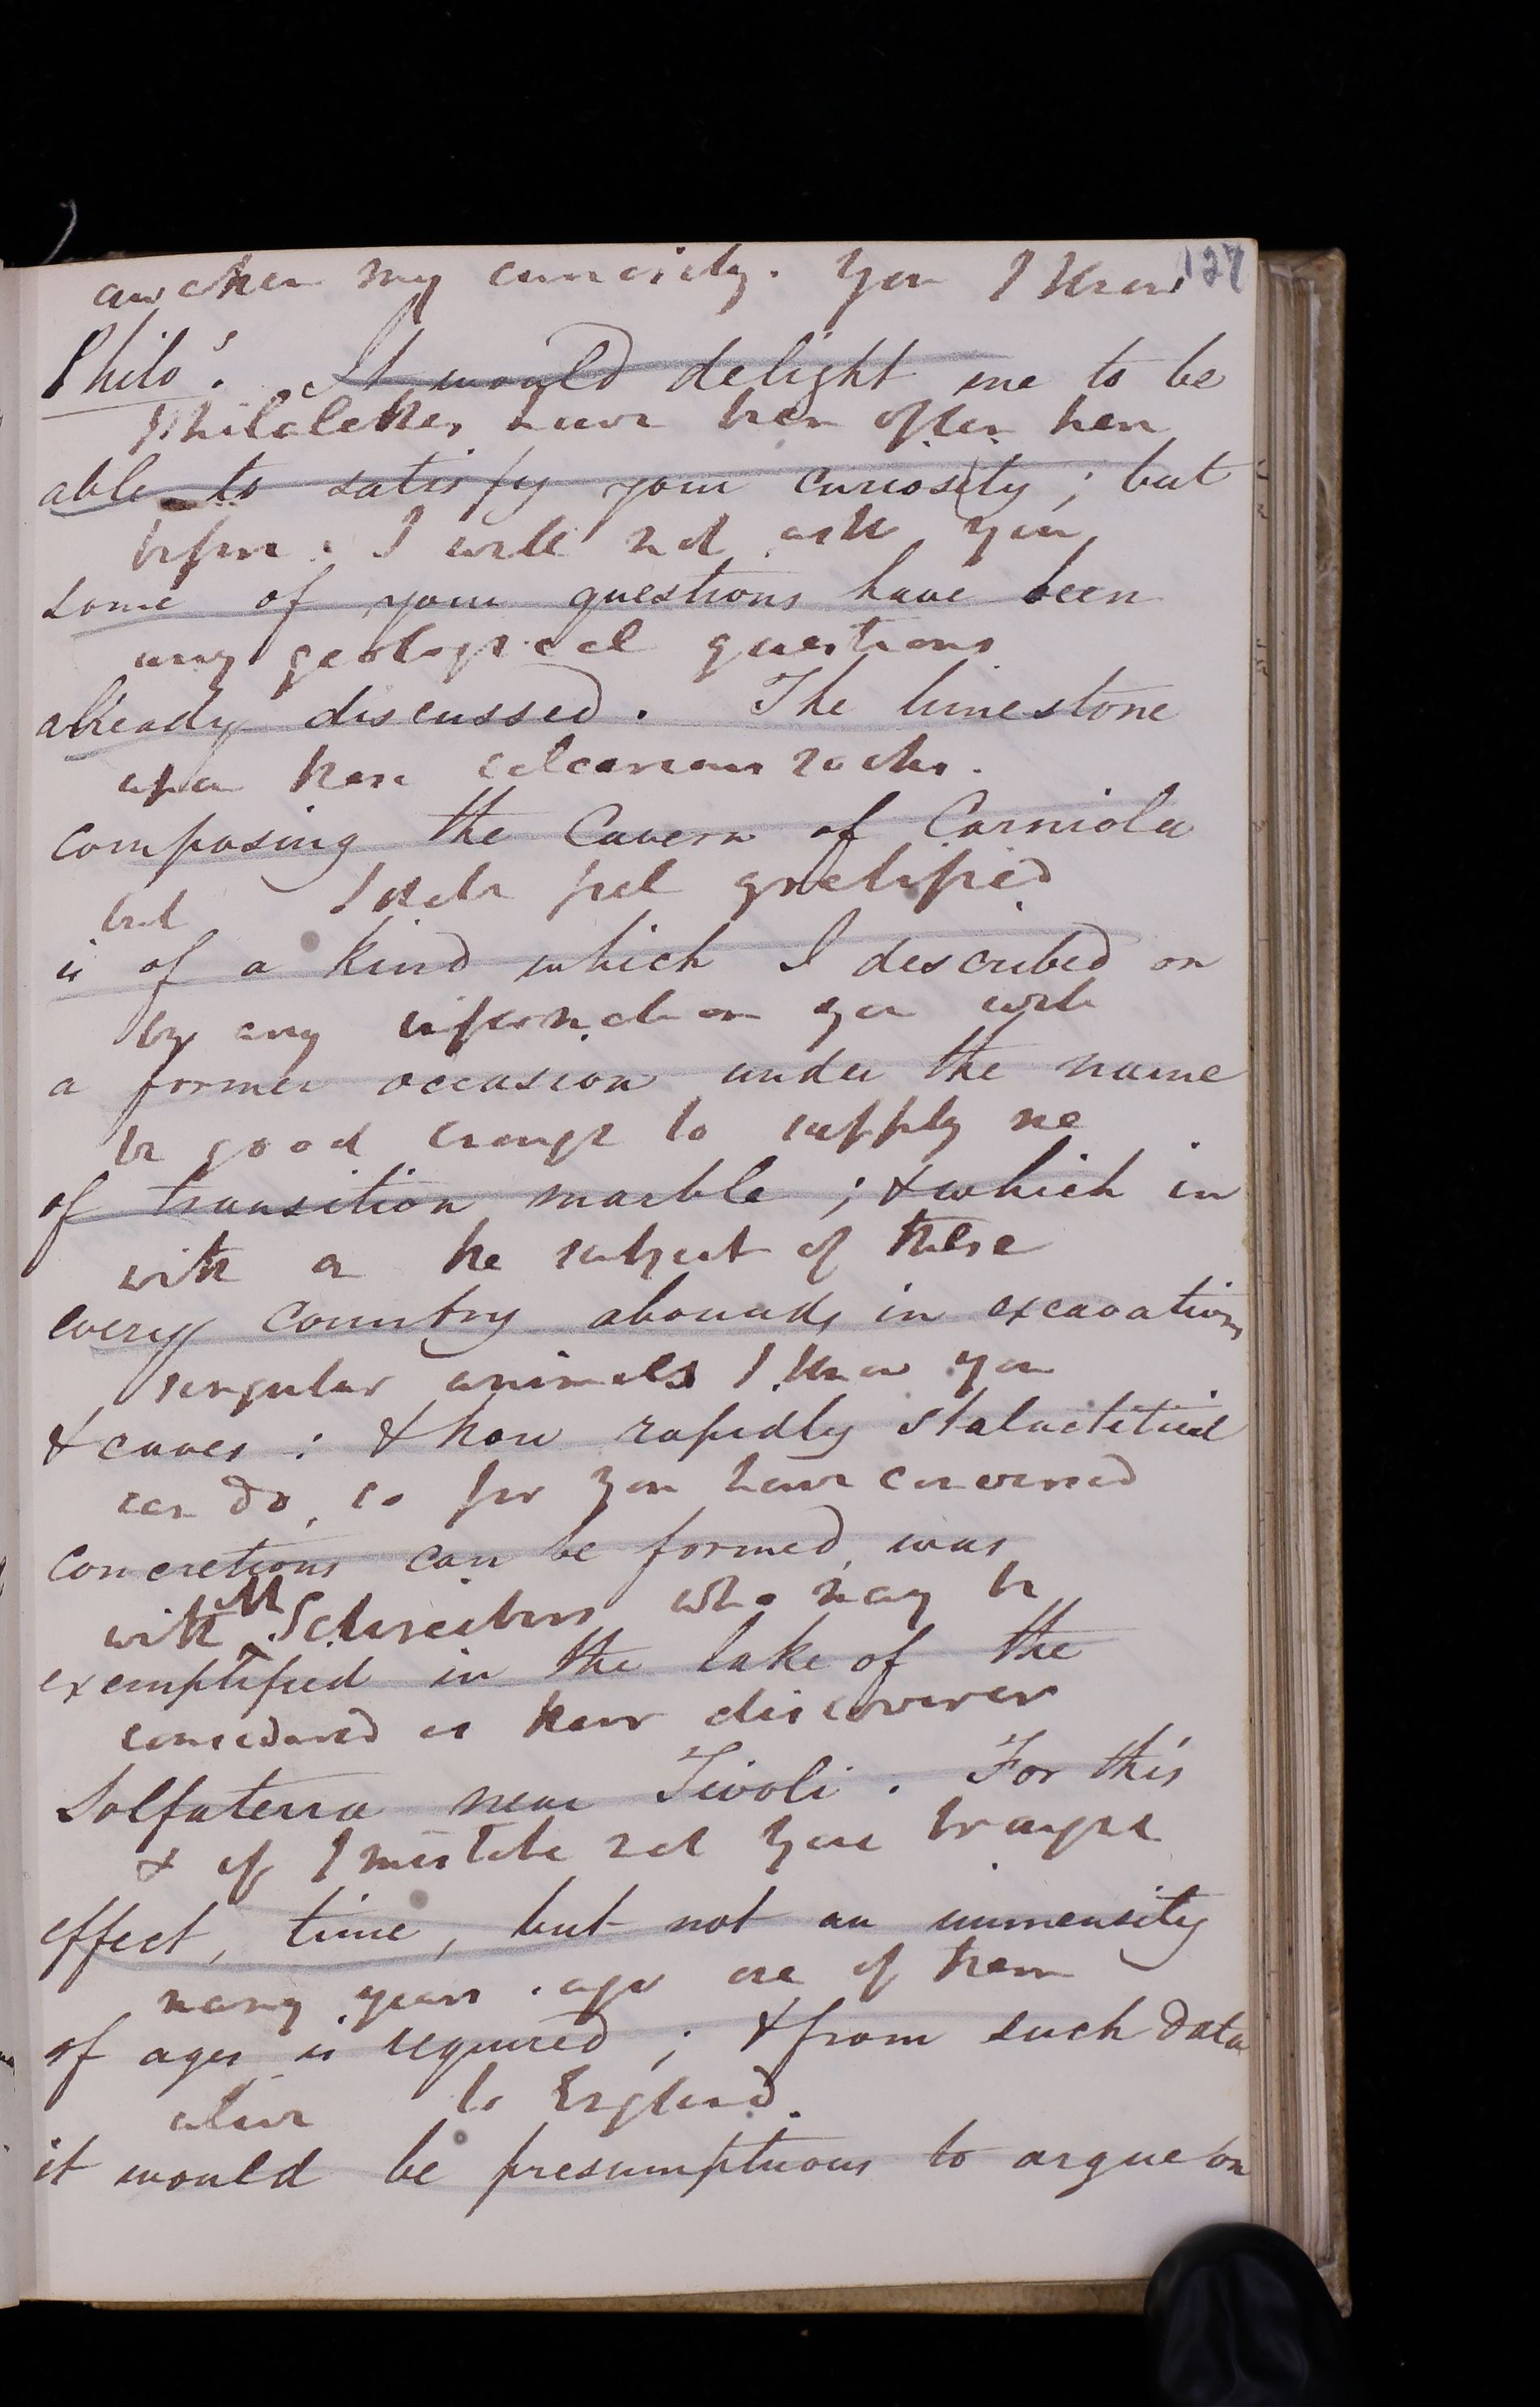 127
awaken my curiosity. You I know
Philo's. It would delight me to be
Philalethes have been often here
able to satisfy your curiosity; but
before. I will not ask you
some of your questions have been
any geological questions
already discussed. The limestone
upon these calcareous rocks.
composing the Cavern of Carniola
but I shall feel gratified
is of a kind which I described on
by any information you will
a former occasion under the name
be good enough to supply me
of transition marble; & which in
with on the subject of these
every Country abounds in excavations
singular animals I know you
& caves: & how rapidly stalactitical
can do so for you have conversed
concretions can be formed, was
with M Schreibers who may be
exemplified in the lake of the
considered as their discoverer
Solfaterra near Tivoli. For this
& if I mistake not you brought
effect, time, but not an immensity
many years ago one of them
of ages is required; & from such data
alive to England.
it would be presumptuous to argue on